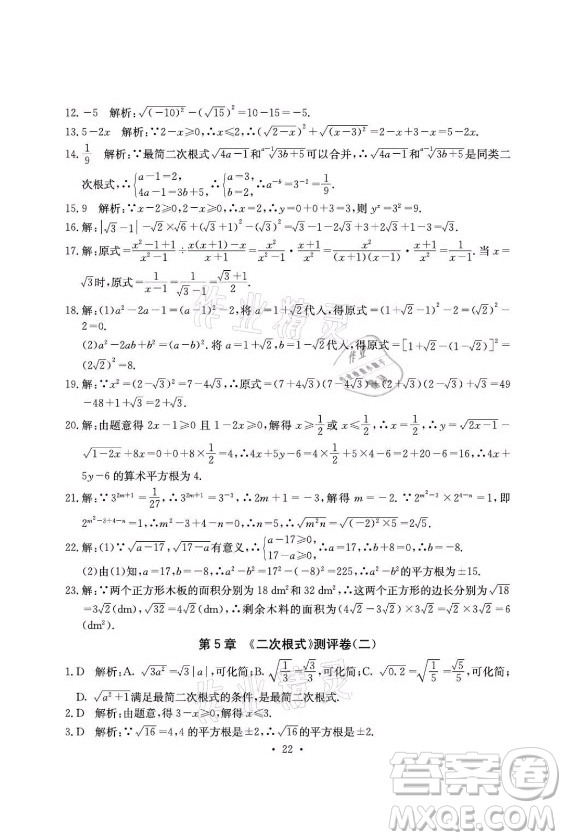 12. -5　解析：√(-10)²-(√15)²=10-15=-5.
13. 5-2x　解析：∵2-x≥0，∴x≤2，∴(√2-x)²+√(x-3)²=2-x+3-x=5-2x.
14. 1/9　解析：∵最简二次根式√4a-1和ᵃ⁻¹√3b+5可以合并，∴√4a-1和ᵃ⁻¹√3b+5是同类二
次根式，∴{a-1=2, 4a-1=3b+5, ∴{a=3, b=2, ∴a⁻ᵇ=3⁻²=1/9.
15. 9　解析：∵x-2≥0，2-x≥0，∴x=2，∴y=0+0+3=3，则yˣ=3²=9.
16. 解：|√3-1|-√2×√6+(√3-1)²=√3-1-2√3+3-2√3+1=3-3√3.
17. 解：原式=x²-1+1/x²-1÷x(x+1)-x/x+1=x²/(x+1)(x-1)·x+1/x²=1/x-1. 当x=
√3时，原式=1/√3-1=√3+1/2.
18. 解：(1)a²-2a-1=(a-1)²-2，将a=1+√2代入，得原式=(1+√2-1)²-2=2-
2=0.
(2)a²-2ab+b²=(a-b)²，将a=1+√2，b=1-√2代入，得原式=[1+√2-(1-√2)]²=
(2√2)²=8.
19. 解：∵x²=(2-√3)²=7-4√3，∴原式=(7+4√3)(7-4√3)+(2+√3)(2-√3)+√3=49
-48+4-3+√3=2+√3.
20. 解：由题意得2x-1≥0且1-2x≥0，解得x≥1/2且x≤1/2，∴x=1/2，∴y=√2x-1-
√1-2x+8x=0-0+8×1/2=4，∴4x+5y-6=4×1/2+5×4-6=2+20-6=16，∴4x+
5y-6的算术平方根为4.
21. 解：∵3²ᵐ⁺¹=1/27，∴3²ᵐ⁺¹=3⁻³，∴2m+1=-3，解得m=-2. ∵2ᵐ²⁻³×2⁴⁻ⁿ=1，即
2ᵐ²⁻³⁺⁴⁻ⁿ=1，∴m²-3+4-n=0，解得n=5，∴√m²n=√(-2)²×5=2√5.
22. 解：(1)∵√a-17，√17-a有意义，∴{a-17≥0, 17-a≥0, ∴a=17，∴b+8=0，解得b=-8.
(2)由(1)知，a=17，b=-8，∴a²-b²=17²-(-8)²=225，∴a²-b²的平方根为±15.
23. 解：∵两个正方形木板的面积分别为18 dm²和32 dm²，∴这两个正方形的边长分别为√18
=3√2(dm)，√32=4√2(dm)，∴剩余木料的面积为(4√2-3√2)×3√2=√2×3√2=6(dm²).
第5章　《二次根式》测评卷(二)
1. D　解析：A. √3a²=√3|a|，可化简；B. √1/3=√3/3，可化简；C. √0.2=√1/5=√5/5，可化简；
D. √a²+1满足最简二次根式的条件，是最简二次根式.
2. D　解析：由题意，得3-x≥0，解得x≤3.
3. D　解析：∵√16=4，4的平方根是±2，∴√16的平方根是±2.
· 22 ·
作业精灵
作业精灵
答案圈
MXQE.COM